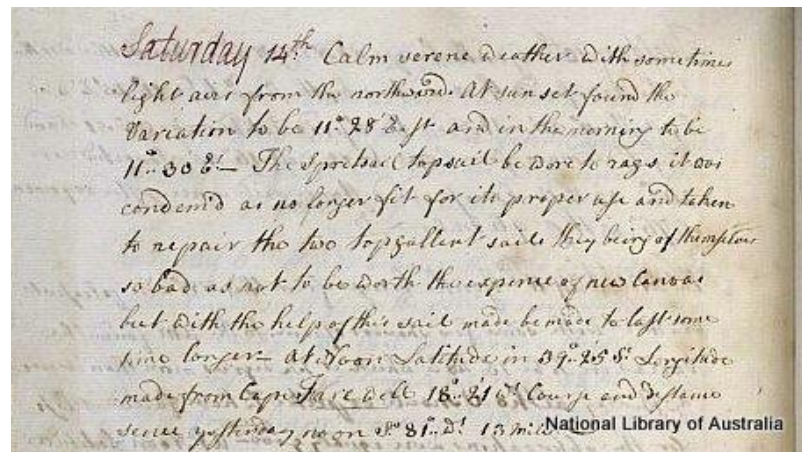 Saturday 14th. Calm serene weather with sometimes
light airs from the northward. At sun set found the
Variation to be 11°..28' East and in the morning to be
11°..30' Et.— The spritsail topsail be wore to rags it was
condem'd as no longer fit for its proper use and taken
to repair the two topgallent sails they being of themselves
so bad as not to be worth the expence of new Canvas
but with the help of this sail made be made to last some
time longer— At Noon Latitude in 39°..25' St. Longitude
made from Cape Farewell 18°..21' Wt. Course and distance
sence yesterday noon So. 81°.. Wt. 13 miles
National Library of Australia